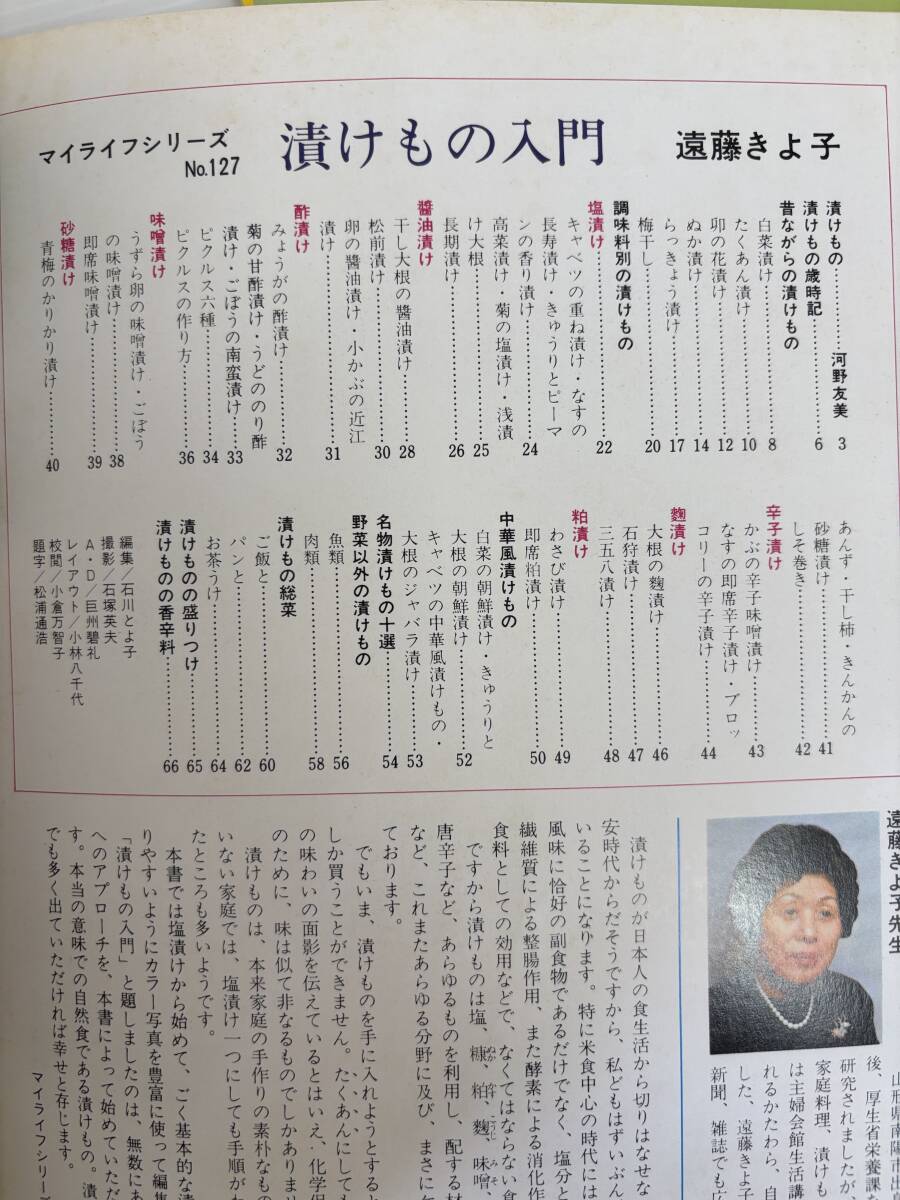 マイライフシリーズ
No.127
漬けもの入門
遠藤きよ子
漬けもの……………河野友美 3
漬けもの歳時記……………6
昔ながらの漬けもの
白菜漬け……………8
たくあん漬け……………10
卯の花漬け……………12
ぬか漬け……………14
らっきょう漬け……………17
梅干し……………20
調味料別の漬けもの
塩漬け……………22
キャベツの重ね漬け・なすの
長寿漬け・きゅうりとピーマ
ンの香り漬け……………24
高菜漬け・菊の塩漬け・浅漬
け大根……………25
長期漬け……………26
醬油漬け
干し大根の醬油漬け……………28
松前漬け……………30
卵の醬油漬け・小かぶの近江
漬け……………31
酢漬け
みょうがの酢漬け……………32
菊の甘酢漬け・うどののり酢
漬け・ごぼうの南蛮漬け……33
ピクルス六種……………34
ピクルスの作り方……………36
味噌漬け
うずら卵の味噌漬け・ごぼう
の味噌漬け……………38
即席味噌漬け……………39
砂糖漬け
青梅のかりかり漬け……………40
あんず・干し柿・きんかんの
砂糖漬け……………41
しそ巻き……………42
辛子漬け
かぶの辛子味噌漬け……………43
なすの即席辛子漬け・ブロッ
コリーの辛子漬け……………44
麴漬け
大根の麴漬け……………46
石狩漬け……………47
三五八漬け……………48
粕漬け
わさび漬け……………49
即席粕漬け……………50
中華風漬けもの
白菜の朝鮮漬け・きゅうりと
大根の朝鮮漬け……………52
キャベツの中華風漬けもの・
大根のジャバラ漬け……………53
名物漬けもの十選……………54
野菜以外の漬けもの
魚類……………56
肉類……………58
漬けもの総菜
ご飯と……………60
パンと……………62
お茶うけ……………64
漬けものの盛りつけ……………65
漬けものの香辛料……………66
編集／石川とよ子
撮影／石塚英夫
A・D／巨州碧礼
レイアウト／小林八千代
校閲／小倉万智子
題字／松浦通浩
遠藤きよ子先生
山形県南陽市出
後、厚生省栄養課
研究されましたが
家庭料理、漬けも
は主婦会館生活講
れるかたわら、自
した、遠藤きよ子
新聞、雑誌でも広
漬けものが日本人の食生活から切りはなせな
安時代からだそうですから、私どもはずいぶん
いることになります。特に米食中心の時代には
風味に恰好の副食物であるだけでなく、塩分と
繊維質による整腸作用、また酵素による消化作
食料としての効用などで、なくてはならない食
ですから漬けものは塩、糠、粕、麴、味噌、
唐辛子など、あらゆるものを利用し、配する材
など、これまたあらゆる分野に及び、まさに
ております。
でもいま、漬けものを手に入れようとすると
しか買うことができません。たくあんにしても
の味わいの面影を伝えているとはいえ、化学保
のために、味は似て非なるものでしかありませ
漬けものは、本来家庭の手作りの素朴なもの
いない家庭では、塩漬け一つにしても手順が
たところも多いようです。
本書では塩漬けから始めて、ごく基本的な漬
りやすいようにカラー写真を豊富に使って編集
「漬けもの入門」と題しましたのは、無数にあ
へのアプローチを、本書によって始めていただ
す。本当の意味での自然食である漬けもの。漬
でも多く出ていただければ幸せと存じます。
マイライフシリー